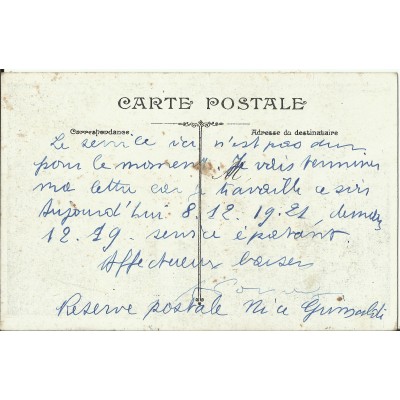 CARTE POSTALE
Correspondance
Adresse du destinataire
Le service ici n'est pas dur
pour le moment Je vais terminer
ma lettre car je travaille ce soir
Aujourd'hui 8.12.19.21, demain
12.19. service épatant
Affectueux baiser
Reserve postale Nice Grimaldi